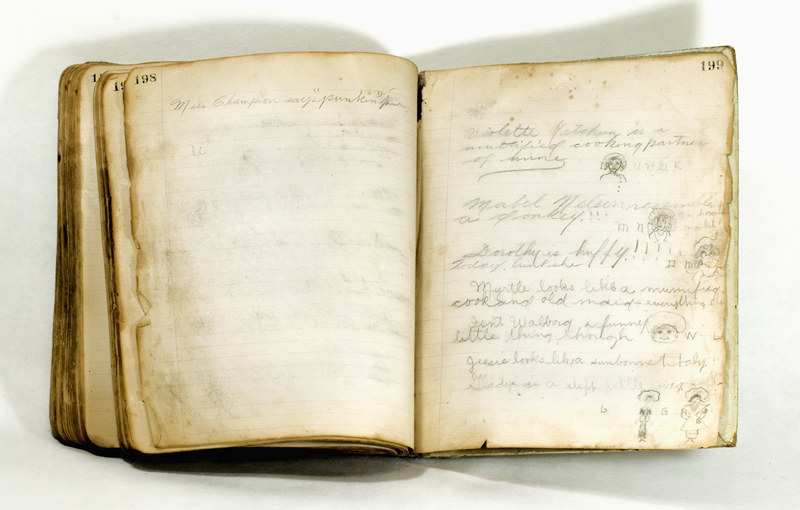 198
Miss Champion says "punkin"
U
199
Violette Ketchen is a
mumified cooking partner
of mine
Mabel Nelson resembles
a donkey!!!
M N
Dorothy is huffy!!!!
today, isn't she
Myrtle looks like a mumified
cook and old maid + everything
Isn't Walborg a funny
little thing though
W
Jessie looks like a sunbonnet baby
is a stiff little
G